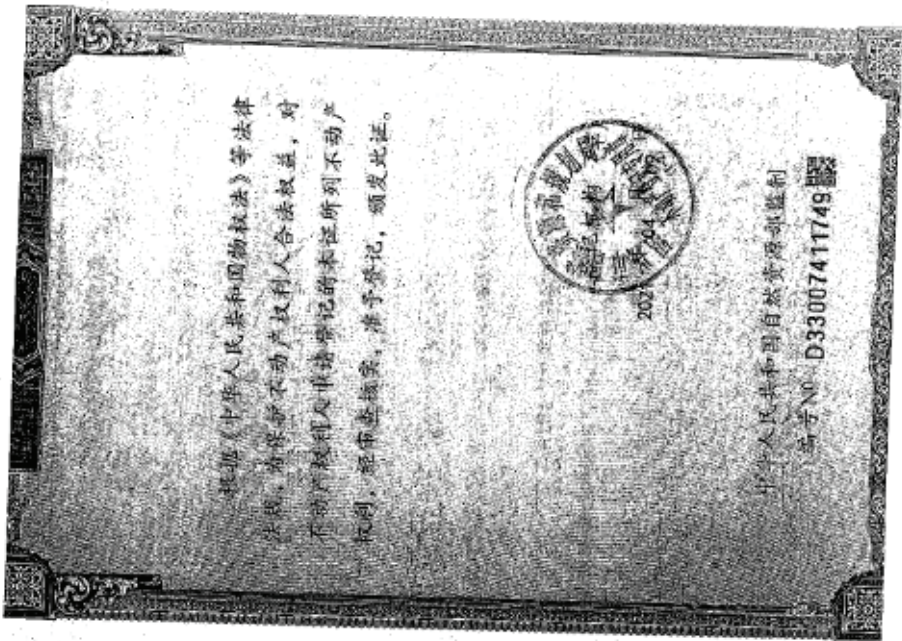 根据《中华人民共和国物权法》等法律
法规，为保护不动产权利人合法权益，对
不动产权利人申请登记的本证所列不动产
权利，经审查核实，准予登记，颁发此证。
中华人民共和国自然资源部监制
编号Nº D33007411749